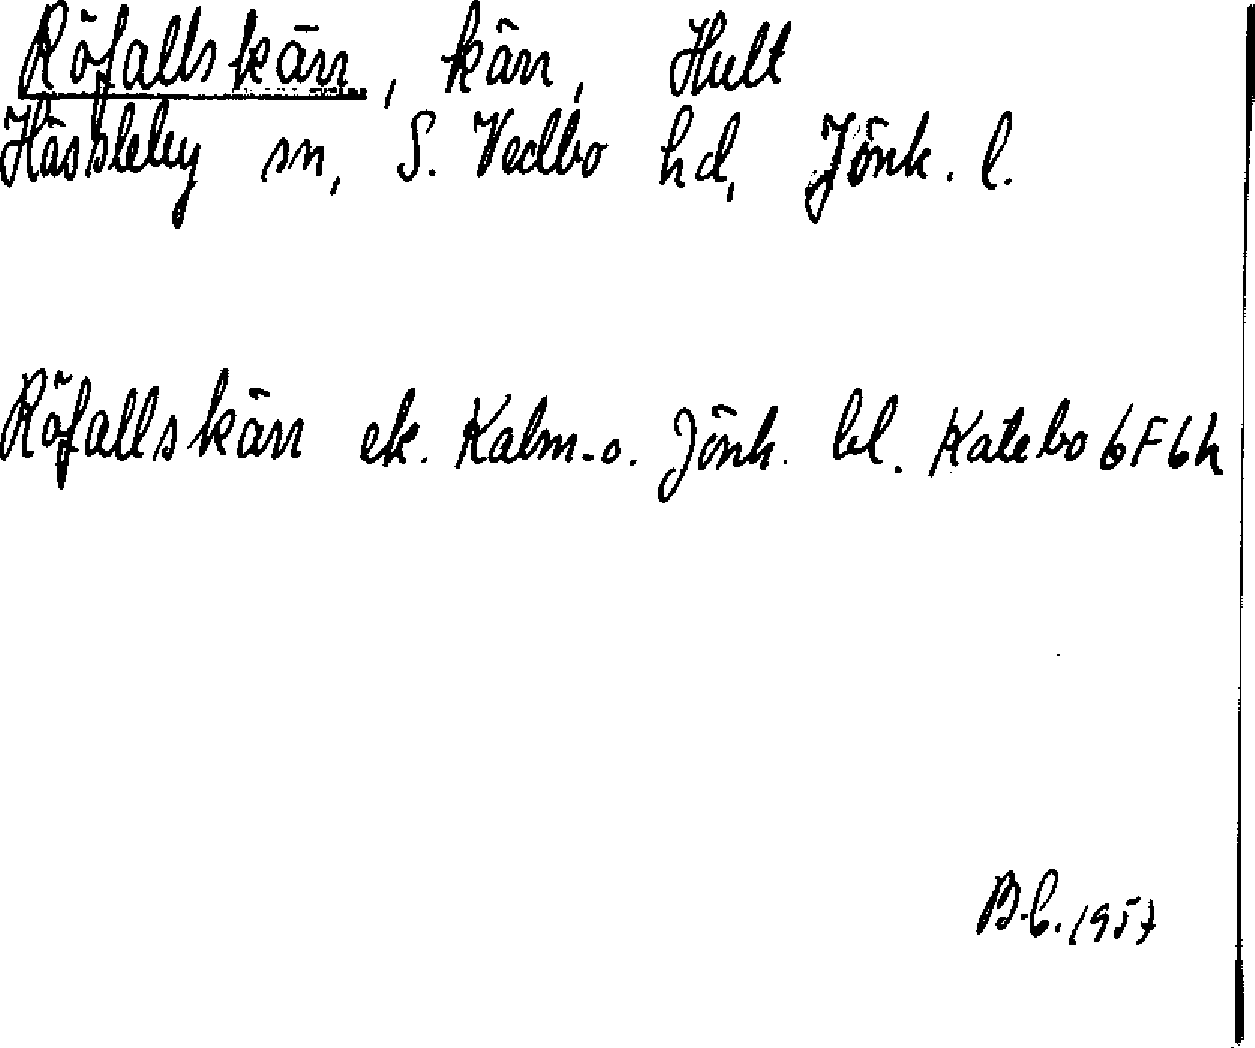 Röfallskärr, kärr, Hult
Hässleby sn, S. Vedbo hd, Jönk. l.
Röfallskärr ek. Kalm.-o. Jönk. bl. Katebo 6F6h
B.C. 1957